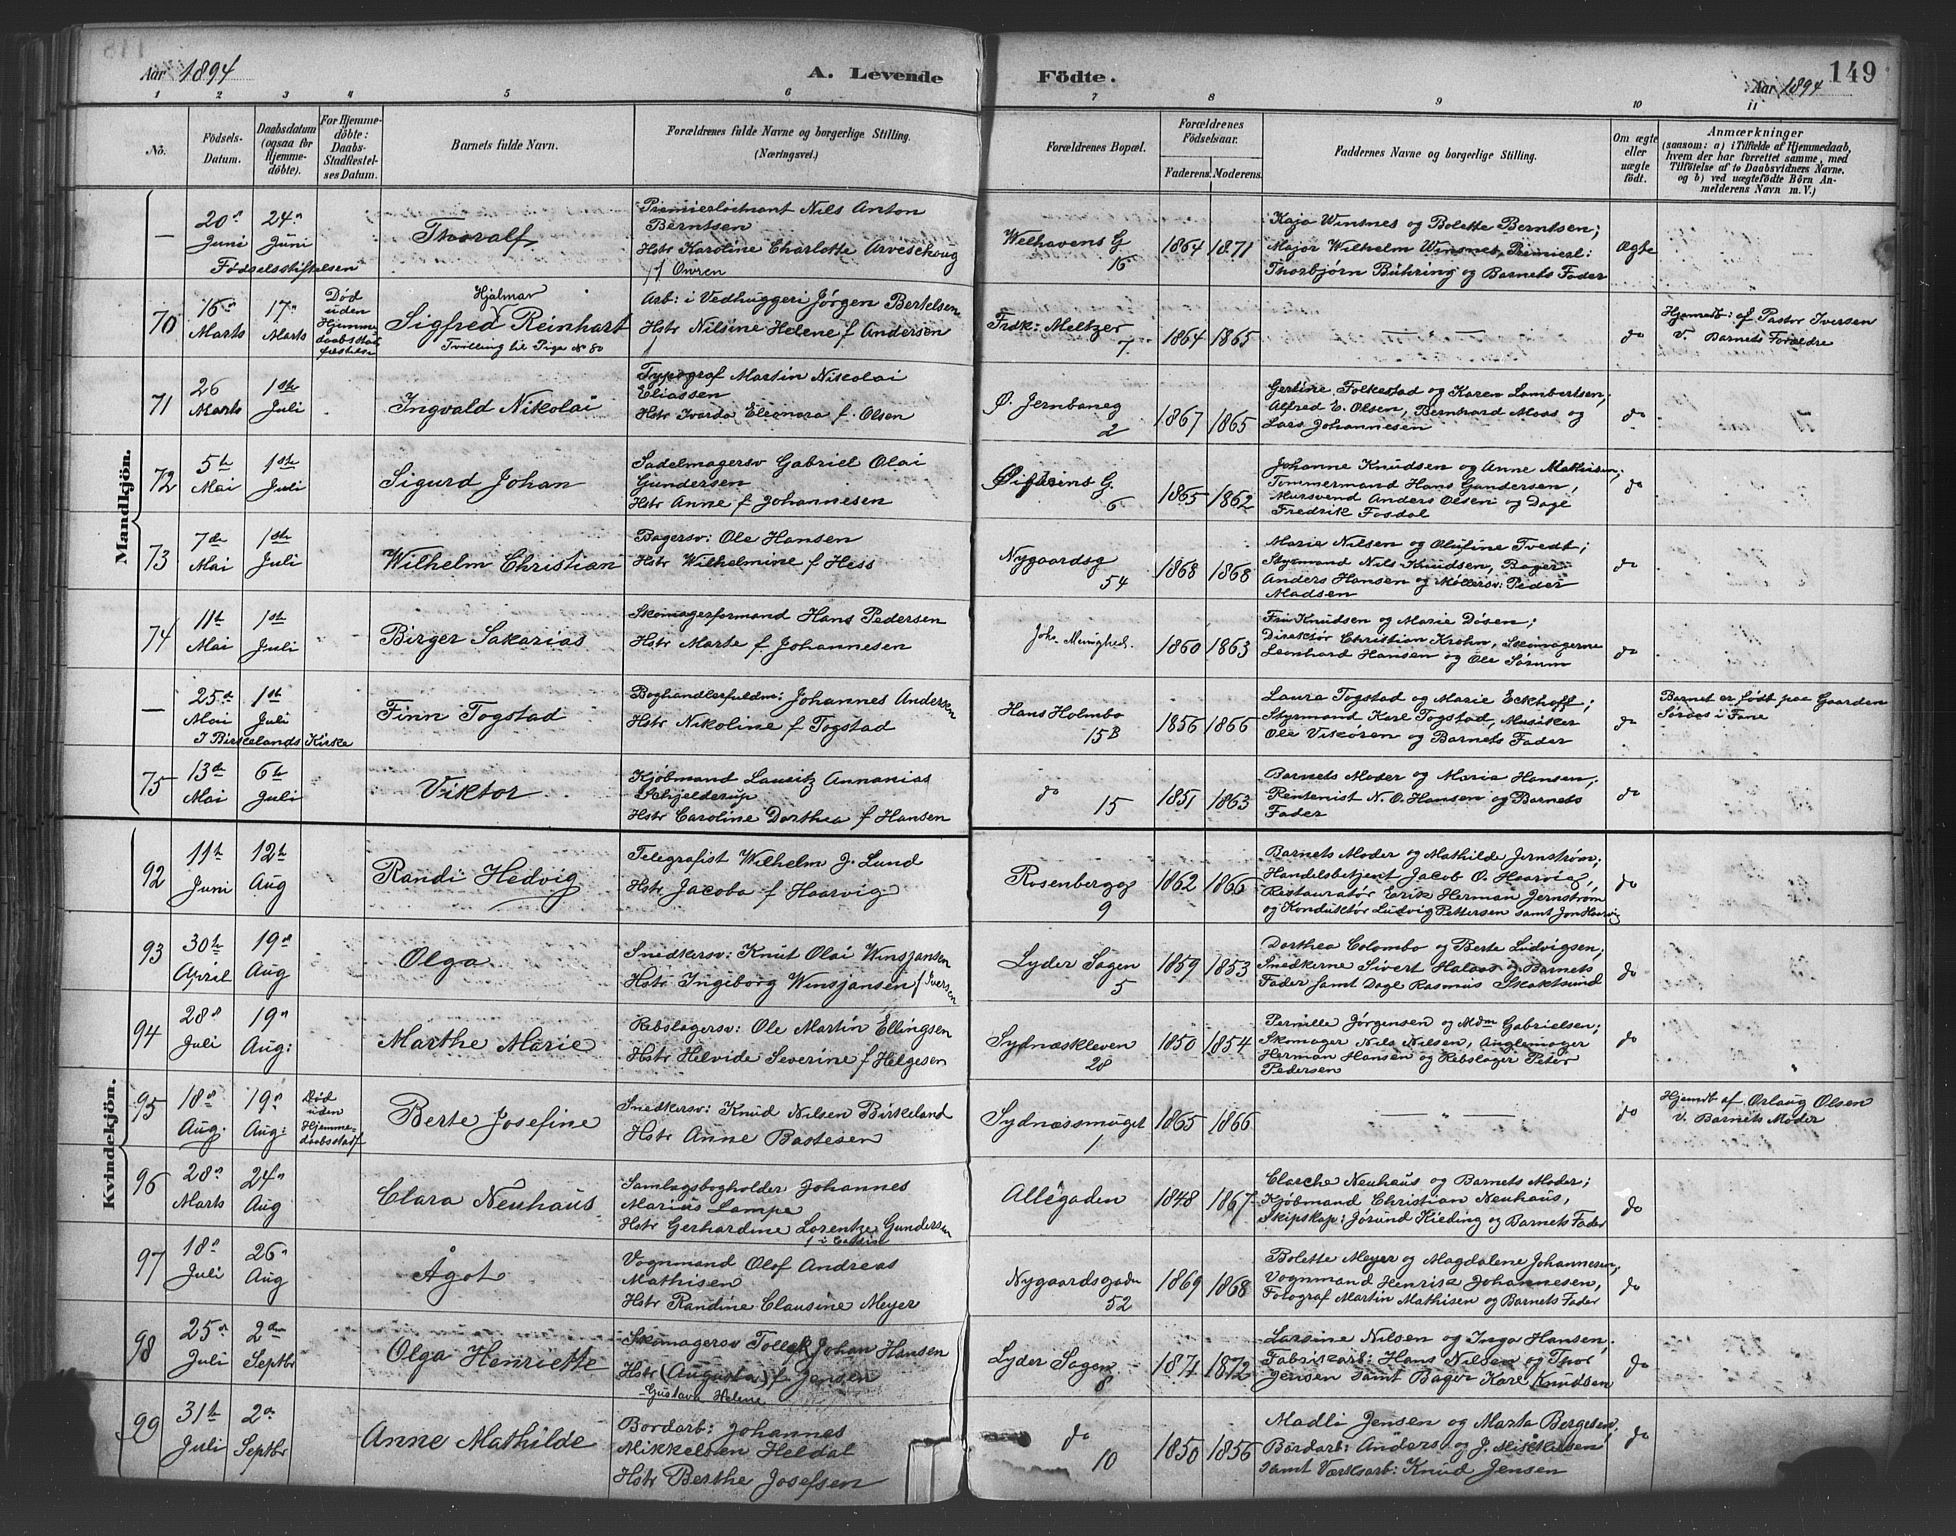 Aar 1894 A. Levende Födte. Aar 1894 149
1 2 3 4 5 6 7 8 9 10 11
No. Födsels-Datum. Daabsdatum (ogsaa for Hjemmedöbte). For Hjemmedöbte: Daabs-Stadfæstelses Datum. Barnets fulde Navn. Forældrenes fulde Navne og borgerlige Stilling. (Næringsvei.) Forældrenes Bopæl. Forældrenes Födselsaar. Faderens. Moderens. Faddernes Navne og borgerlige Stilling. Om ægte eller uægte födt. Anmærkninger (saasom: a) i Tilfælde af Hjemmedaab, hvem der har forrettet samme, med Tilföielse af to Daabsvidners Navne. og b) ved uægtefödte Börn Anmelderens Navn m. V.)
Mandkjön.
— 20de Juni 24de Juni Fødselsstiftelsen Thoralf Premierløitnant Nils Anton
Berntsen
Hstr Karoline Charlotte Arveskoug
f Owren
Welhavens G 16 1864 1871 Kaja Winsnes og Bolette Berntsen;
Major Wilhelm Winsnes, Premierl:
Thorbjørn Bühring og Barnets Fader
Ægte
70 16de Marts 17de Marts Død uden Hjemmedaabsstadfæstelse Hjalmar
Sigfred Reinhart
Tvilling til Pige No 80
Arb: i Vedhuggeri Jørgen Bertelsen
Hstr Nilsine Helene f Andersen
Fredk: Meltzer 7. 1864 1865 — " — do Hjemmedt: af Pastor Iversen
V. Barnets Forældre
71 26 Marts 1ste Juli Ingvald Nikolai Typograf Martin Nikolai
Eliassen
Hstr Ivarda Eleonora f. Olsen
Ø. Jernbaneg 2 1867 1865 Gertine Folkestad og Karen Lambertsen;
Alfred E. Olsen, Bernhard Maas og
Lars Johannesen
do
72 5te Mai 1ste Juli Sigurd Johan Sadelmagersv Gabriel Olai
Gundersen
Hstr Anne f Johannesen
G. 6 1865 1862 Johanne Knudsen og Anne Mathisen;
Tømmermand Hans Gundersen,
Mursvend Anders Olsen og Dagl
Fredrik Fosdal
do
73 7de Mai 1ste Juli Wilhelm Christian Bagersv: Ole Hansen
Hstr Wilhelmine f Hess
Nygaardsg 54 1868 1868 Marie Nilsen og Olufine Tvedt;
Styrmand Nils Knudsen, Bager
Anders Hansen og Møllersv: Peder
Madsen
do
74 11te Mai 1ste Juli Birger Sakarias Skomagerformand Hans Pedersen
Hstr Marte f Johannesen
1860 1863 Fru Knudsen og Marie Døsen;
Direktør Christian Krohn, Skomagerne
Leonhard Hansen og Ole Sørum
do
— 25de Mai 1ste Juli I Birkelands Kirke Finn Togstad Boghandlerfuldm: Johannes Andersen
Hstr Nikoline f Togstad
Hans Holmbo 15 B 1856 1866 Laura Togstad og Marie Eckhoff;
Styrmand Karl Togstad, Musiker
Ole Vikøren og Barnets Fader
do Barnet er født paa Gaarden
Søraas i Fane
75 13de Mai 6te Juli Viktor Kjøbmand Lauritz Annanias
Schjelderup
Hstr Caroline Dorthea f Hansen
do 15 1851 1863 Barnets Moder og Maria Hansen;
Rentenist N. O. Hansen og Barnets
Fader
do
Kvindekjön.
92 11te Juni 12te Aug Randi Hedvig Telegrafist Wilhelm J. Lund
Hstr Jacoba f Haarvig
Rosenbergg 9 1862 1866 Barnets Moder og Mathilde Jernstrøm;
Handelsbetjent Jacob O. Haarvig,
Restauratør Erik Herman Jernstrøm
og Konduktør Ludvig Pettersen samt Jon Haarvig
do
93 30te April 19de Aug Olga Snedkersv: Knut Olai Winsjansen
Hstr Ingeborg Winsjansen f Iversen
Lyder Sagen 5 1859 1853 Dorthea Colombo og Berte Ludvigsen;
Snedkerne Sivert Halaas og Barnets
Fader samt Dagl Rasmus Skaktsund
do
94 28de Juli 19de Aug: Marthe Marie Rebslagersv: Ole Martin Ellingsen
Hstr Helvide Severine f Helgesen
Sydnæskleven 28 1850 1854 Pernille Jørgensen og Mdm Gabrielsen;
Skomager Nils Nilsen, Anglemager
Herman Hansen og Rebslager Peter
Pedersen
do
95 18de Aug. 19de Aug: Død uden Hjemmedaabsstadf Berte Josefine Snedkersv: Knud Nilsen Birkeland
Hstr Anne Bastesen
Sydnæssmuget 1 1865 1866 — " — do Hjemdt af Orlaug Olsen
V. Barnets Moder
96 28de Marts 24de Aug Clara Neuhaus. Samlagsbogholder Johannes
Marius Lampe
Hstr Gerhardine Lorentze Gundersen
Allégaden 1848 1867 Clarche Neuhaus og Barnets Moder;
Kjøbmand Christian Neuhaus,
Skipskap: Jørund Kieding og Barnets Fader
do
97 18de Juli 26de Aug Ågot Vognmand Olof Andreas
Mathisen
Hstr Randine Clausine Meyer
Nygaardsgadn 52 1869 1868 Bolette Meyer og Magdalene Johannesen,
Vognmand Henrik Johannesen,
Fotograf Martin Mathisen og Barnets Fader
do
98 25de Juli 2den Septbr Olga Henriette Skomagersv Tollef Johan Hansen
Hstr (Augusta) f Jensen
Gustava Helene
Lyder Sagen 8 1871 1872 Larsine Nilsen og Inga Hansen,
Fabrikarb: Hans Nilsen og Thor
Jensen samt Bager Karl Knudsen
do
99 31te Juli 2den Septbr Anne Mathilde Bordarb: Johannes
Mikkelsen Heldal
Hstr Berthe Josefsen
do 10 1850 1856 Madli Jensen og Marta Børgesen;
Bordarb: Anders og J. Mikkelsen
samt Værksarb: Knud Jensen
do